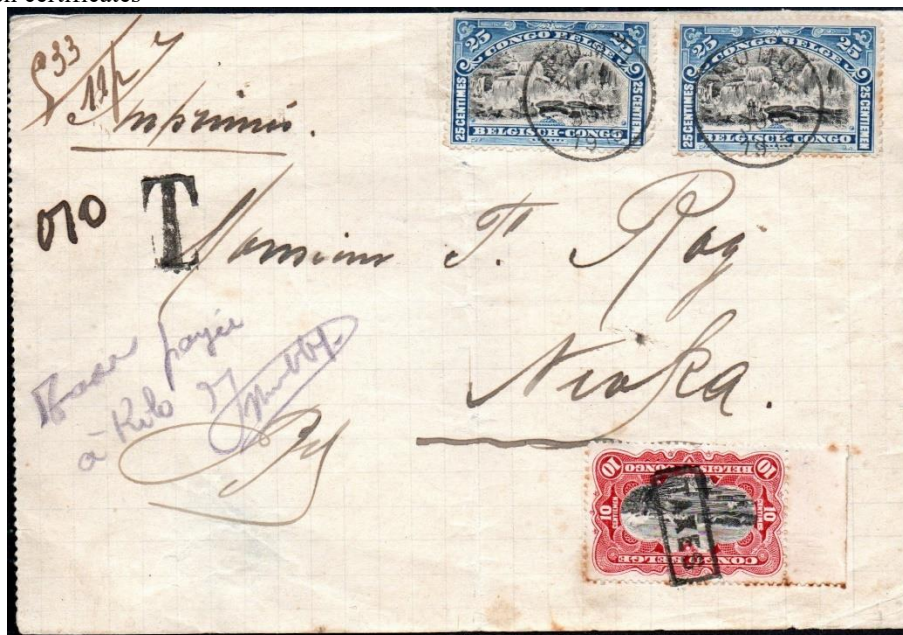 certificates
933
Imprimés.
25 CONGO BELGE 25
25 CENTIMES
25 CENTIEMEN
BELGISCH-CONGO
25 CONGO BELGE 25
25 CENTIMES
25 CENTIEMEN
BELGISCH-CONGO
T
Monsieur F. Rog
Nioka.
Taxe payée
à Kilo
10 BELGISCH-CONGO 10
10 CENTIEMEN
10 CENTIMES
CONGO BELGE
TAXES